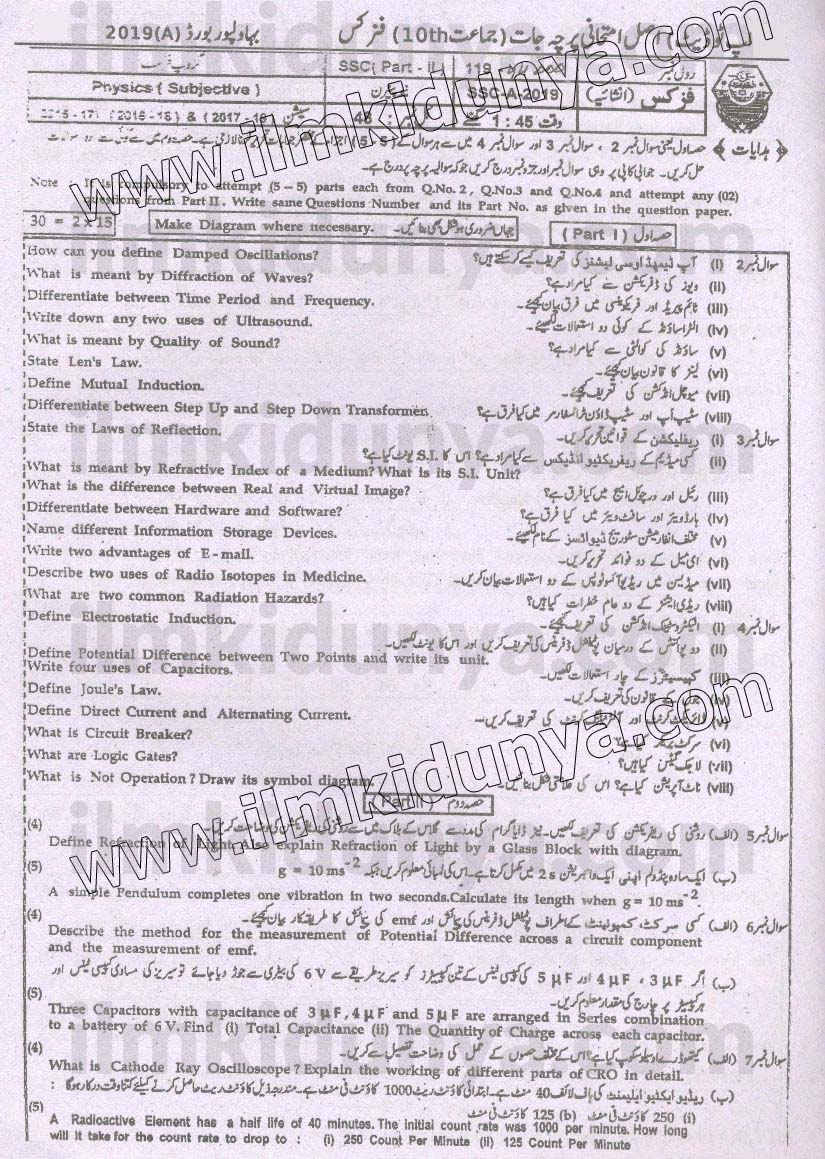 اپ ٹو ڈیٹ / حل امتحانی پرچہ جات (جماعت 10th) فزکس بہاولپور بورڈ 2019(A)
رول نمبر 119 SSC( Part - II)
فزکس (انشائیہ) SSC-A-2019 Physics ( Subjective )
وقت 1 : 45 48 سیشن (2015 -17) (2016 -18) & (2017 -19)
﴿ ہدایات ﴾ حصہ اول یعنی سوال نمبر 2 ، سوال نمبر 3 اور سوال نمبر 4 میں سے ہر سوال کے (5 - 5)
حل کریں۔ جوابی کاپی پر وہی سوال نمبر اور جز نمبر درج کریں جو کہ سوالیہ پرچہ پر درج ہے۔
Note : It is compulsory to attempt (5 – 5) parts each from Q.No. 2 , Q.No.3 and Q.No.4 and attempt any (02)
questions from Part II . Write same Questions Number and its Part No. as given in the question paper.
30 = 2 x 15 Make Diagram where necessary. جہاں ضروری ہو شکل بھی بنائیں۔ ( Part I ) حصہ اول
How can you define Damped Oscillations? سوال نمبر 2 (i) آپ ڈیمپڈ اوسی لیشنز کی تعریف کیسے کر سکتے ہیں؟
What is meant by Diffraction of Waves? (ii) ویوز کی ڈفریکشن سے کیا مراد ہے؟
Differentiate between Time Period and Frequency. (iii) ٹائم پیریڈ اور فریکوئنسی میں فرق بیان کیجئے۔
Write down any two uses of Ultrasound. (iv) الٹراساؤنڈ کے کوئی دو استعمالات لکھیئے۔
What is meant by Quality of Sound? (v) ساؤنڈ کی کوالٹی سے کیا مراد ہے؟
State Len's Law. (vi) لینز کا قانون بیان کیجئے۔
Define Mutual Induction. (vii) میوچل انڈکشن کی تعریف کیجئے۔
Differentiate between Step Up and Step Down Transformer. (viii) سٹیپ اَپ اور سٹیپ ڈاؤن ٹرانسفارمر میں کیا فرق ہے؟
State the Laws of Reflection. سوال نمبر 3 (i) ریفلیکشن کے قوانین تحریر کریں۔
(ii) کسی میڈیم کے ریفریکٹیو انڈیکس سے کیا مراد ہے؟ اس کا S.I. یونٹ کیا ہے؟
What is meant by Refractive Index of a Medium? What is its S.I. Unit?
What is the difference between Real and Virtual Image? (iii) رئیل اور ورچوئل امیج میں کیا فرق ہے؟
Differentiate between Hardware and Software? (iv) ہارڈ ویئر اور سافٹ ویئر میں کیا فرق ہے؟
Name different Information Storage Devices. (v) مختلف انفارمیشن سٹوریج ڈیوائسز کے نام لکھیئے۔
Write two advantages of E-mail. (vi) ای میل کے دو فوائد تحریر کریں۔
Describe two uses of Radio Isotopes in Medicine. (vii) میڈیسن میں ریڈیو آئسوٹوپس کے دو استعمالات بیان کریں۔
What are two common Radiation Hazards? (viii) ریڈی ایشنز کے دو عام خطرات کیا ہیں؟
Define Electrostatic Induction. سوال نمبر 4 (i) الیکٹروسٹیٹک انڈکشن کی تعریف کیجئے۔
(ii) دو پوائنٹس کے درمیان پوٹینشل ڈفرینس کی تعریف کریں اور اس کا یونٹ لکھیں۔
Define Potential Difference between Two Points and write its unit.
Write four uses of Capacitors. (iii) کپیسیٹرز کے چار استعمالات لکھیں۔
Define Joule's Law. (iv) جول کے قانون کی تعریف کریں۔
Define Direct Current and Alternating Current. (v) ڈائریکٹ کرنٹ اور کرنٹ کی تعریف کریں۔
What is Circuit Breaker? (vi) سرکٹ بریکر کیا ہے؟
What are Logic Gates? (vii) لاجک گیٹس کیا ہیں؟
What is Not Operation ? Draw its symbol diagram. (viii) ناٹ آپریشن کیا ہے؟ اس کی علامتی شکل بنائیں۔
( Part II ) حصہ دوم
(4) سوال نمبر 5 (الف) روشنی کی ریفریکشن کی تعریف لکھیں۔ نیز ڈایاگرام کی مدد سے گلاس کے بلاک میں سے روشنی کی ریفریکشن کی وضاحت کریں۔
Define Refraction of Light. Also explain Refraction of Light by a Glass Block with diagram.
(5) (ب) ایک سادہ پنڈولم اپنی ایک وائبریشن 2 s میں مکمل کرتا ہے۔ اس کی لمبائی معلوم کریں جبکہ g = 10 ms⁻²
A simple Pendulum completes one vibration in two seconds. Calculate its length when g = 10 ms⁻².
(4) سوال نمبر 6 (الف) کسی سرکٹ کمپوننٹ کے اطراف پوٹینشل ڈفرینس کی پیمائش اور emf کی پیمائش کا طریقہ کار بیان کیجئے۔
Describe the method for the measurement of Potential Difference across a circuit component
and the measurement of emf.
(ب) اگر 3 µF ، 4 µF اور 5 µF کی کپیسی ٹینس کے تین کپیسیٹرز کو سیریز طریقے سے 6 V کی بیٹری سے جوڑ دیا جائے تو سیریز کی مساوی کپیسی ٹینس اور
(5) ہر کپیسیٹر پر چارج کی مقدار معلوم کریں۔
Three Capacitors with capacitance of 3 µF , 4 µF and 5 µF are arranged in Series combination
to a battery of 6 V. Find (i) Total Capacitance (ii) The Quantity of Charge across each capacitor.
(4) سوال نمبر 7 (الف) کیتھوڈ رے اوسیلوسکوپ کیا ہے؟ اس کے مختلف حصوں کے عمل کی وضاحت تفصیل سے کریں۔
What is Cathode Ray Oscilloscope ? Explain the working of different parts of CRO in detail.
(ب) ریڈیو ایکٹیو ایلیمنٹ کی ہاف لائف 40 منٹ ہے۔ ابتدائی کاؤنٹ ریٹ 1000 کاؤنٹ فی منٹ ہے۔ مندرجہ ذیل کاؤنٹ ریٹ حاصل کرنے کیلئے کتنا وقت درکار ہوگا :
(5) (i) 250 کاؤنٹ فی منٹ (b) 125 کاؤنٹ فی منٹ
A Radioactive Element has a half life of 40 minutes. The initial count rate was 1000 per minute. How long
will it take for the count rate to drop to : (i) 250 Count Per Minute (ii) 125 Count Per Minute
www.ilmkidunya.com
www.ilmkidunya.com
ilmkidunya.com